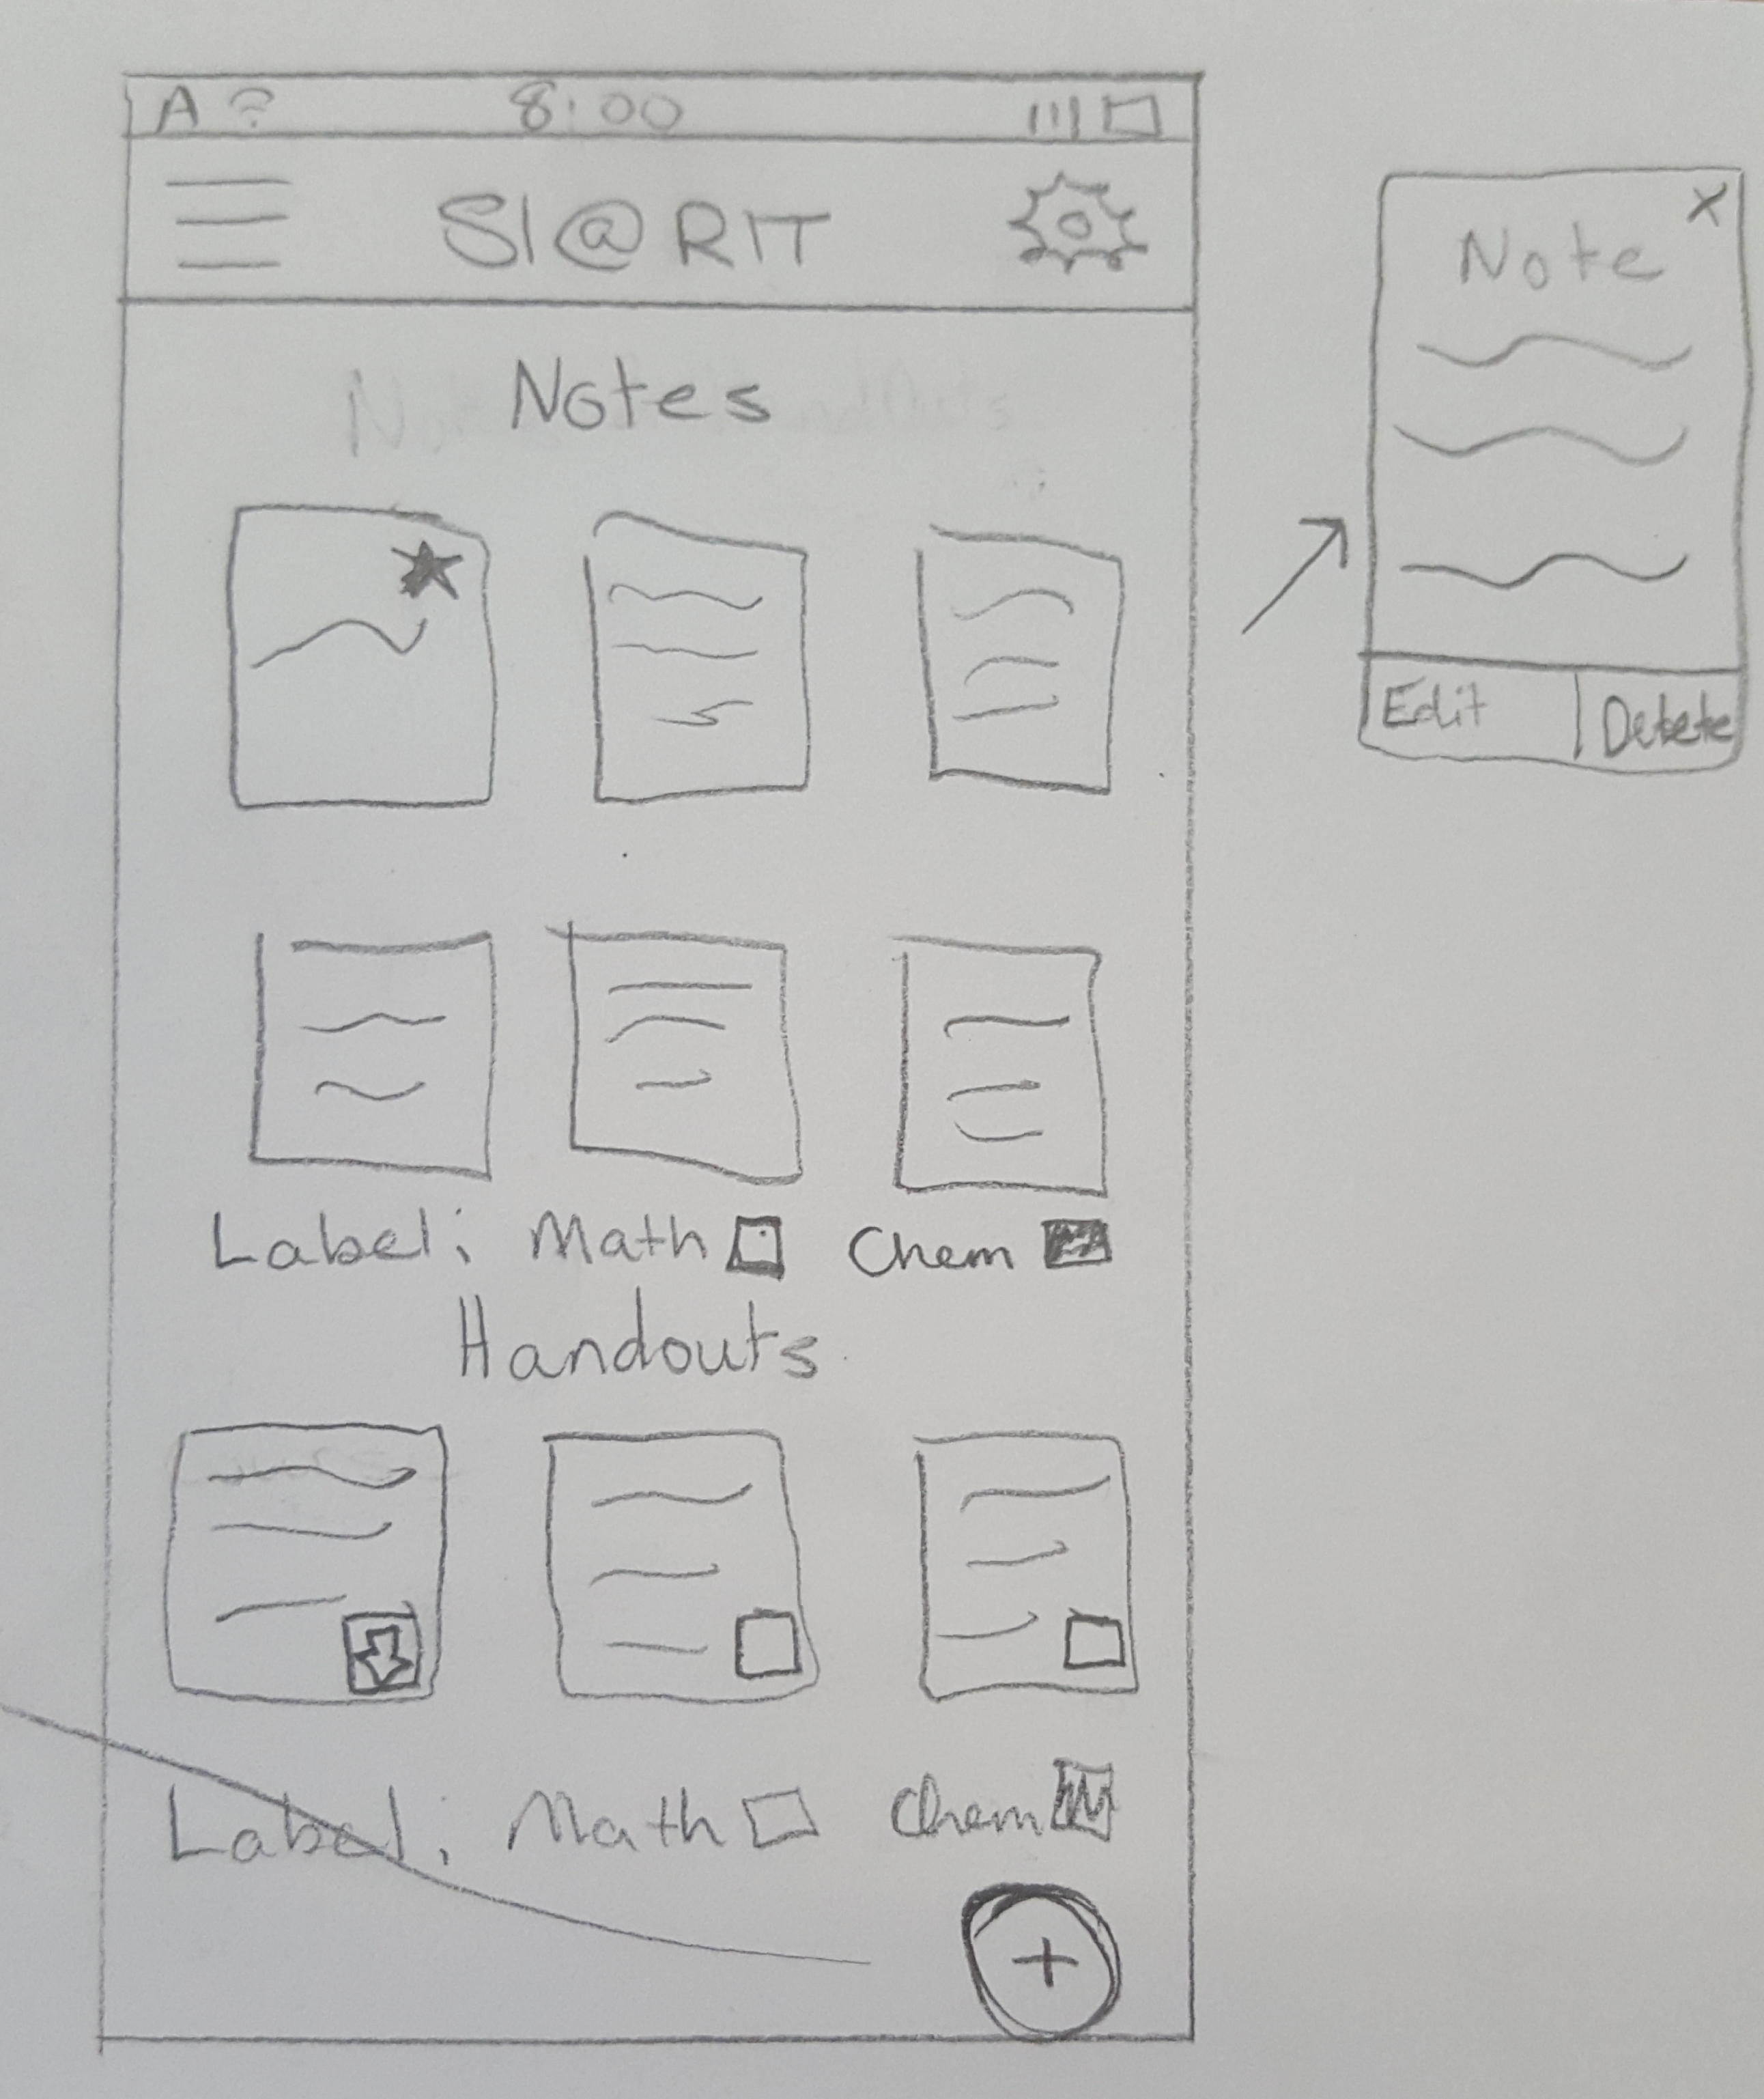 A 8:00
SI@RIT
Notes
Label: Math Chem
Handouts
Label: Math Chem
+
X
Note
Edit Delete